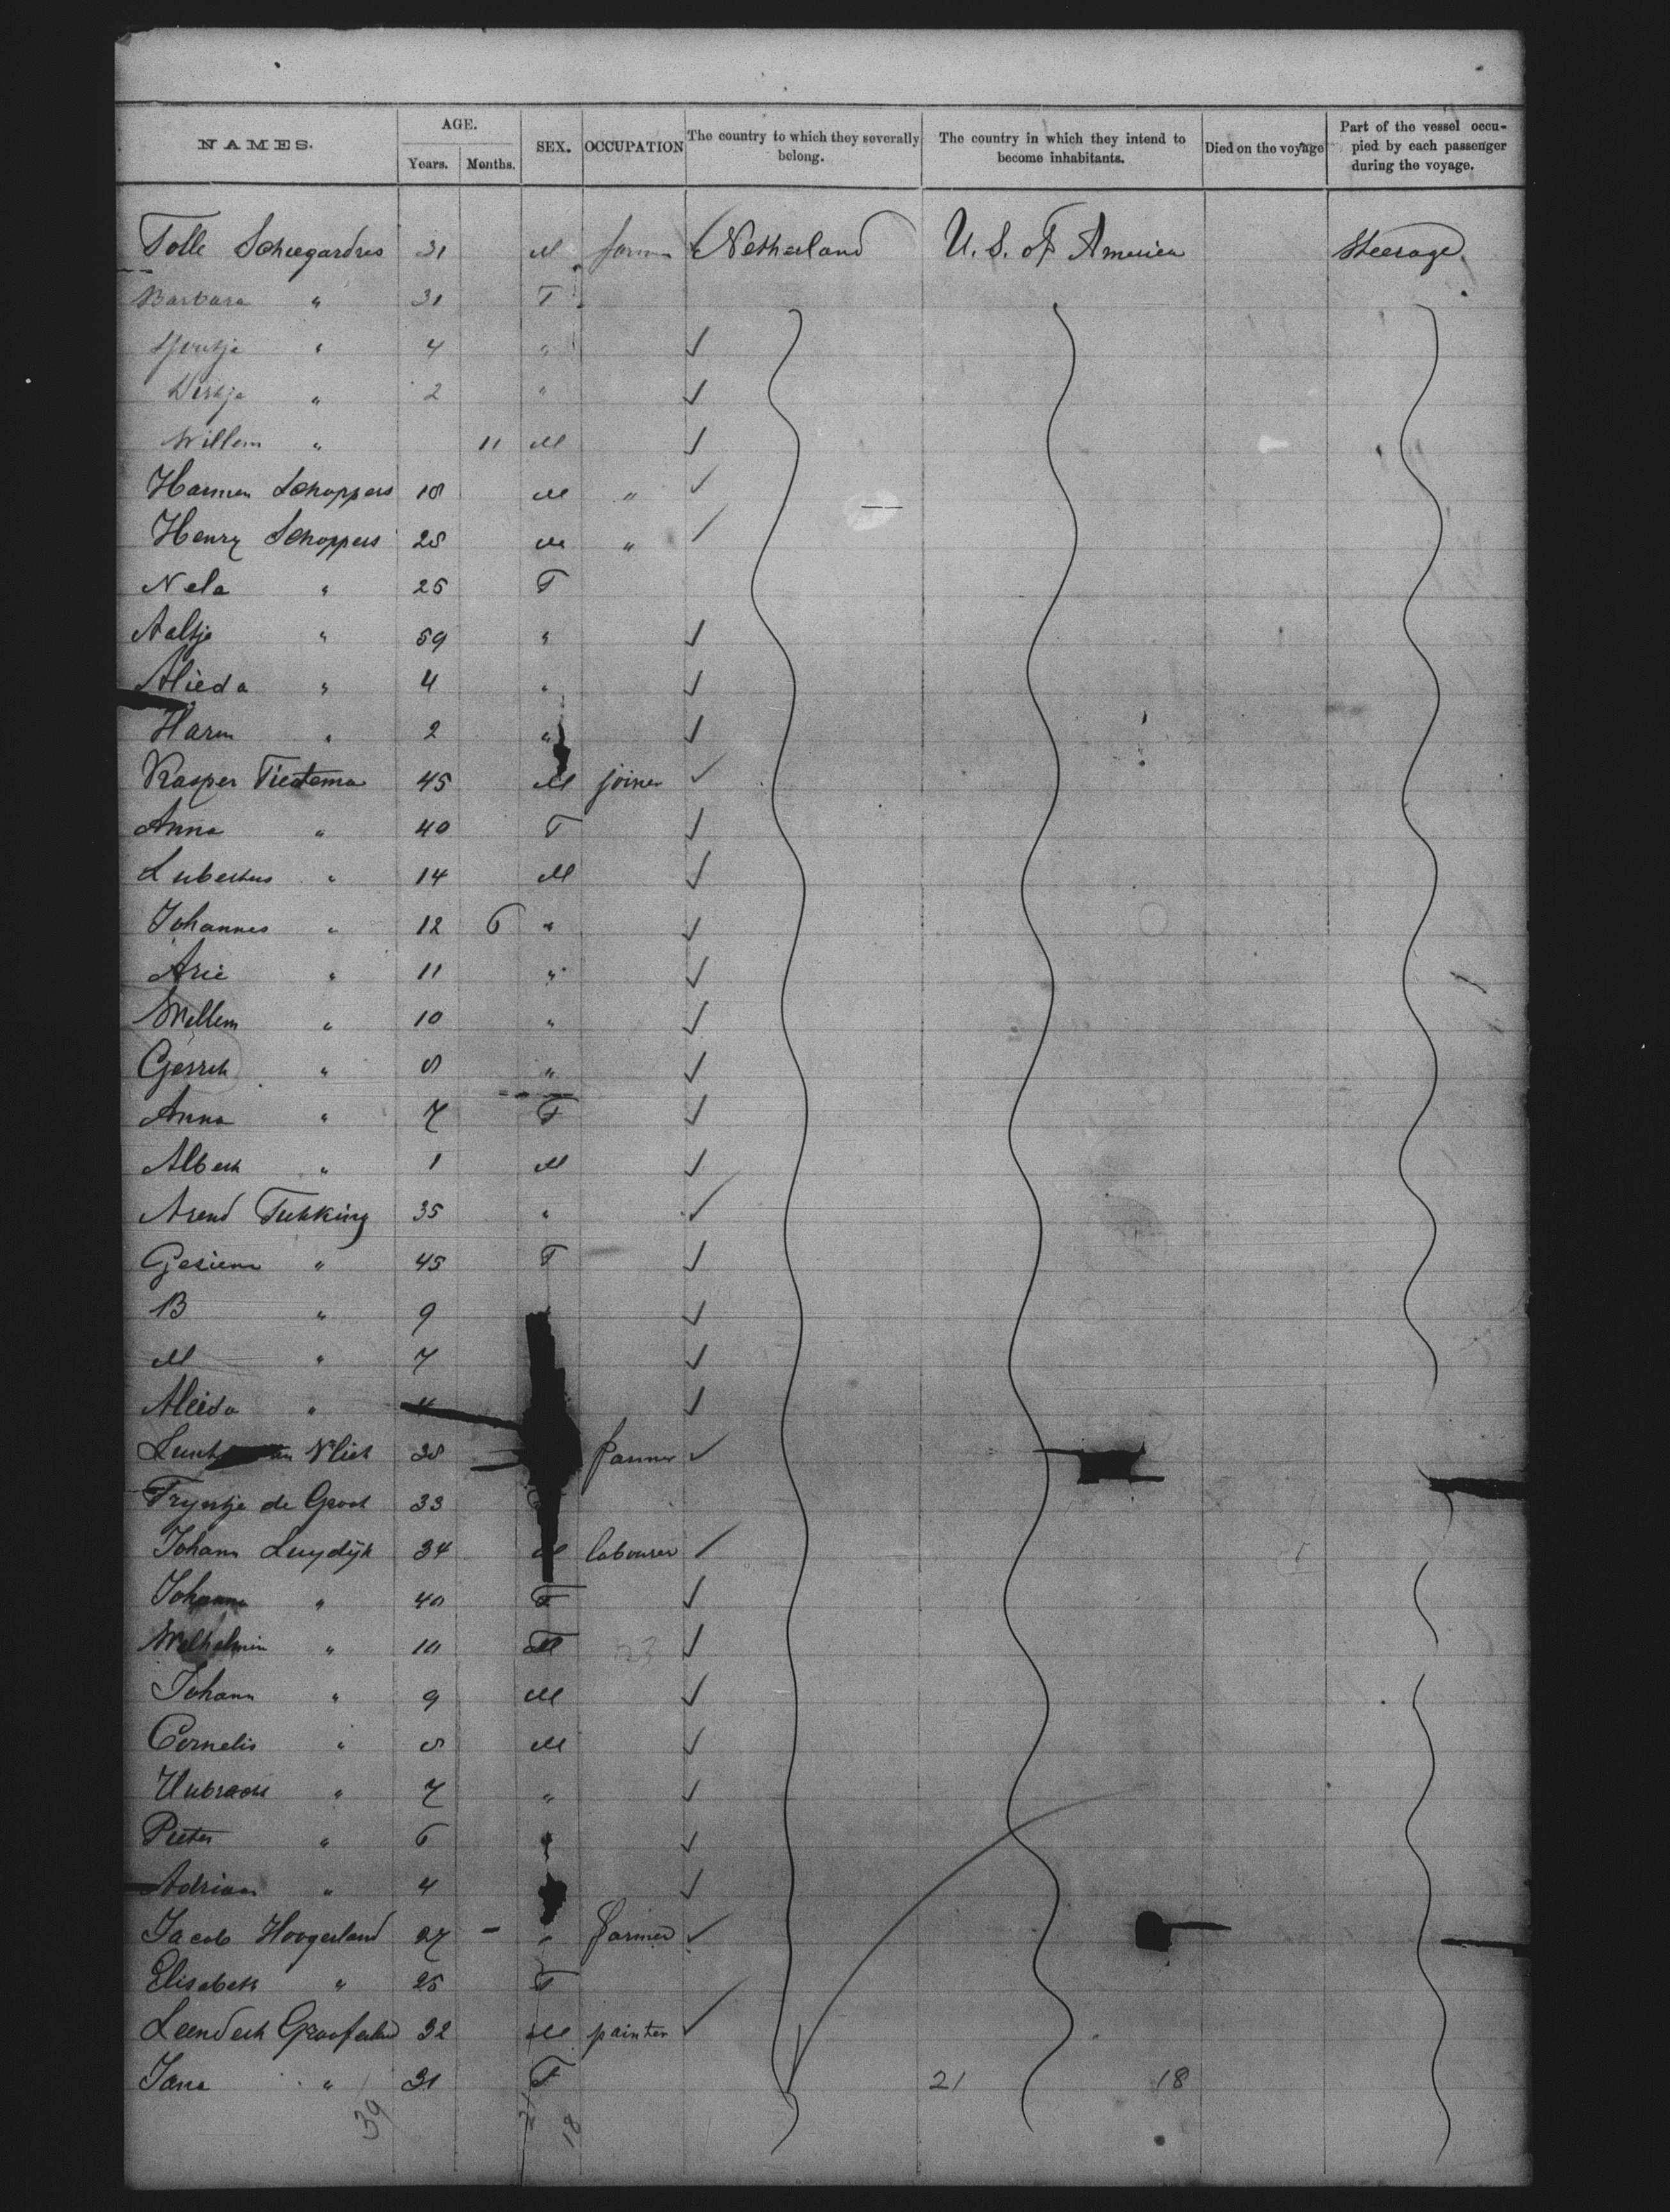 NAMES. AGE. SEX. OCCUPATION The country to which they severally belong. The country in which they intend to become inhabitants. Died on the voyage Part of the vessel occupied by each passenger during the voyage.
Years. Months.
Tolle 31 M Netherland U. S. of America Steerage
Barbara " 31 F
" 4 "
" 2 "
Willem " 11 M
Harmen Schoppers 18 M "
Henry Schoppers 28 M "
Nela " 25 F
Aaltje " 59 "
Alieda " 4 "
Harm " 2 "
Kasper Tiedema 45 M joiner
Anna " 40 F
Lubertus " 14 M
Johannes " 12 6 "
Arie " 11 "
Willem " 10 "
Gerrit " 8 "
Anna " 7 F
Albert " 1 M
Arend 35 "
Gesiena " 45 F
B " 9
M " 7
Aleida "
Vliet 38 farmer
Tryntje de Groot 33
Johann Luydijk 34 M labourer
Johanna " 40 F
Wilhelmin " 10
Johann " 9 M
Cornelis " 8 M
" 7 "
Pieter " 6
Adrian " 4
Jacob Hoogerland 27 - " farmer
Elisabeth " 25 F
Leendert 32 M painter
Jana " 31 F 21 18
39 21 18